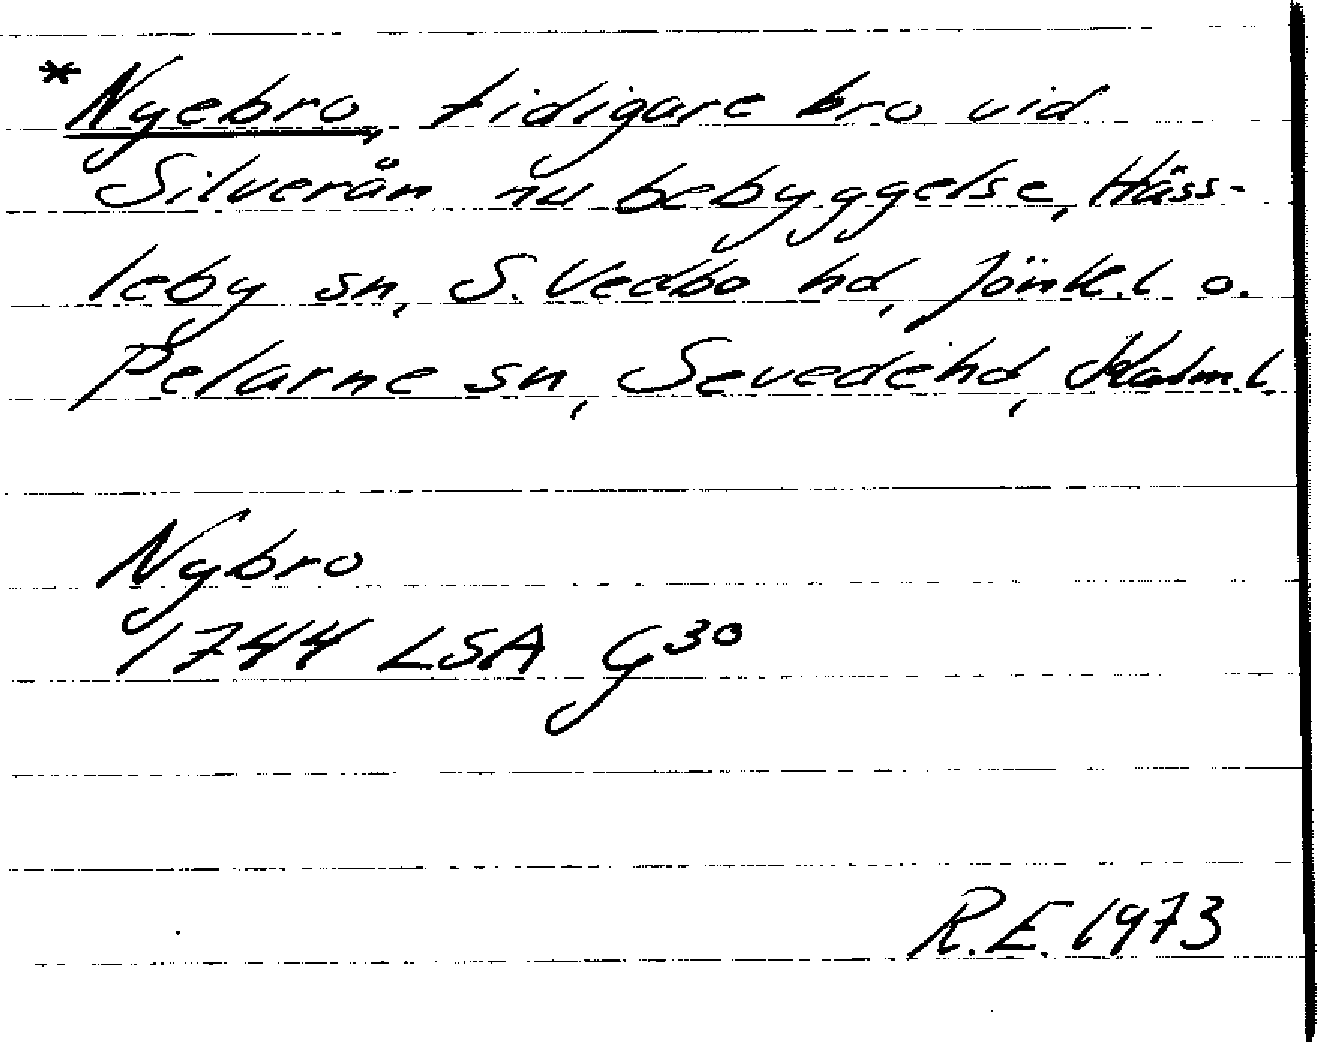 *Nyebro, tidigare bro vid
Silverån nu bebyggelse, Häss-
leby sn, S. Vedbo hd, Jönk.l. o.
Pelarne sn, Sevede hd, Kalm.l.
Nybro
1744 LSA G30
R.E. 1973